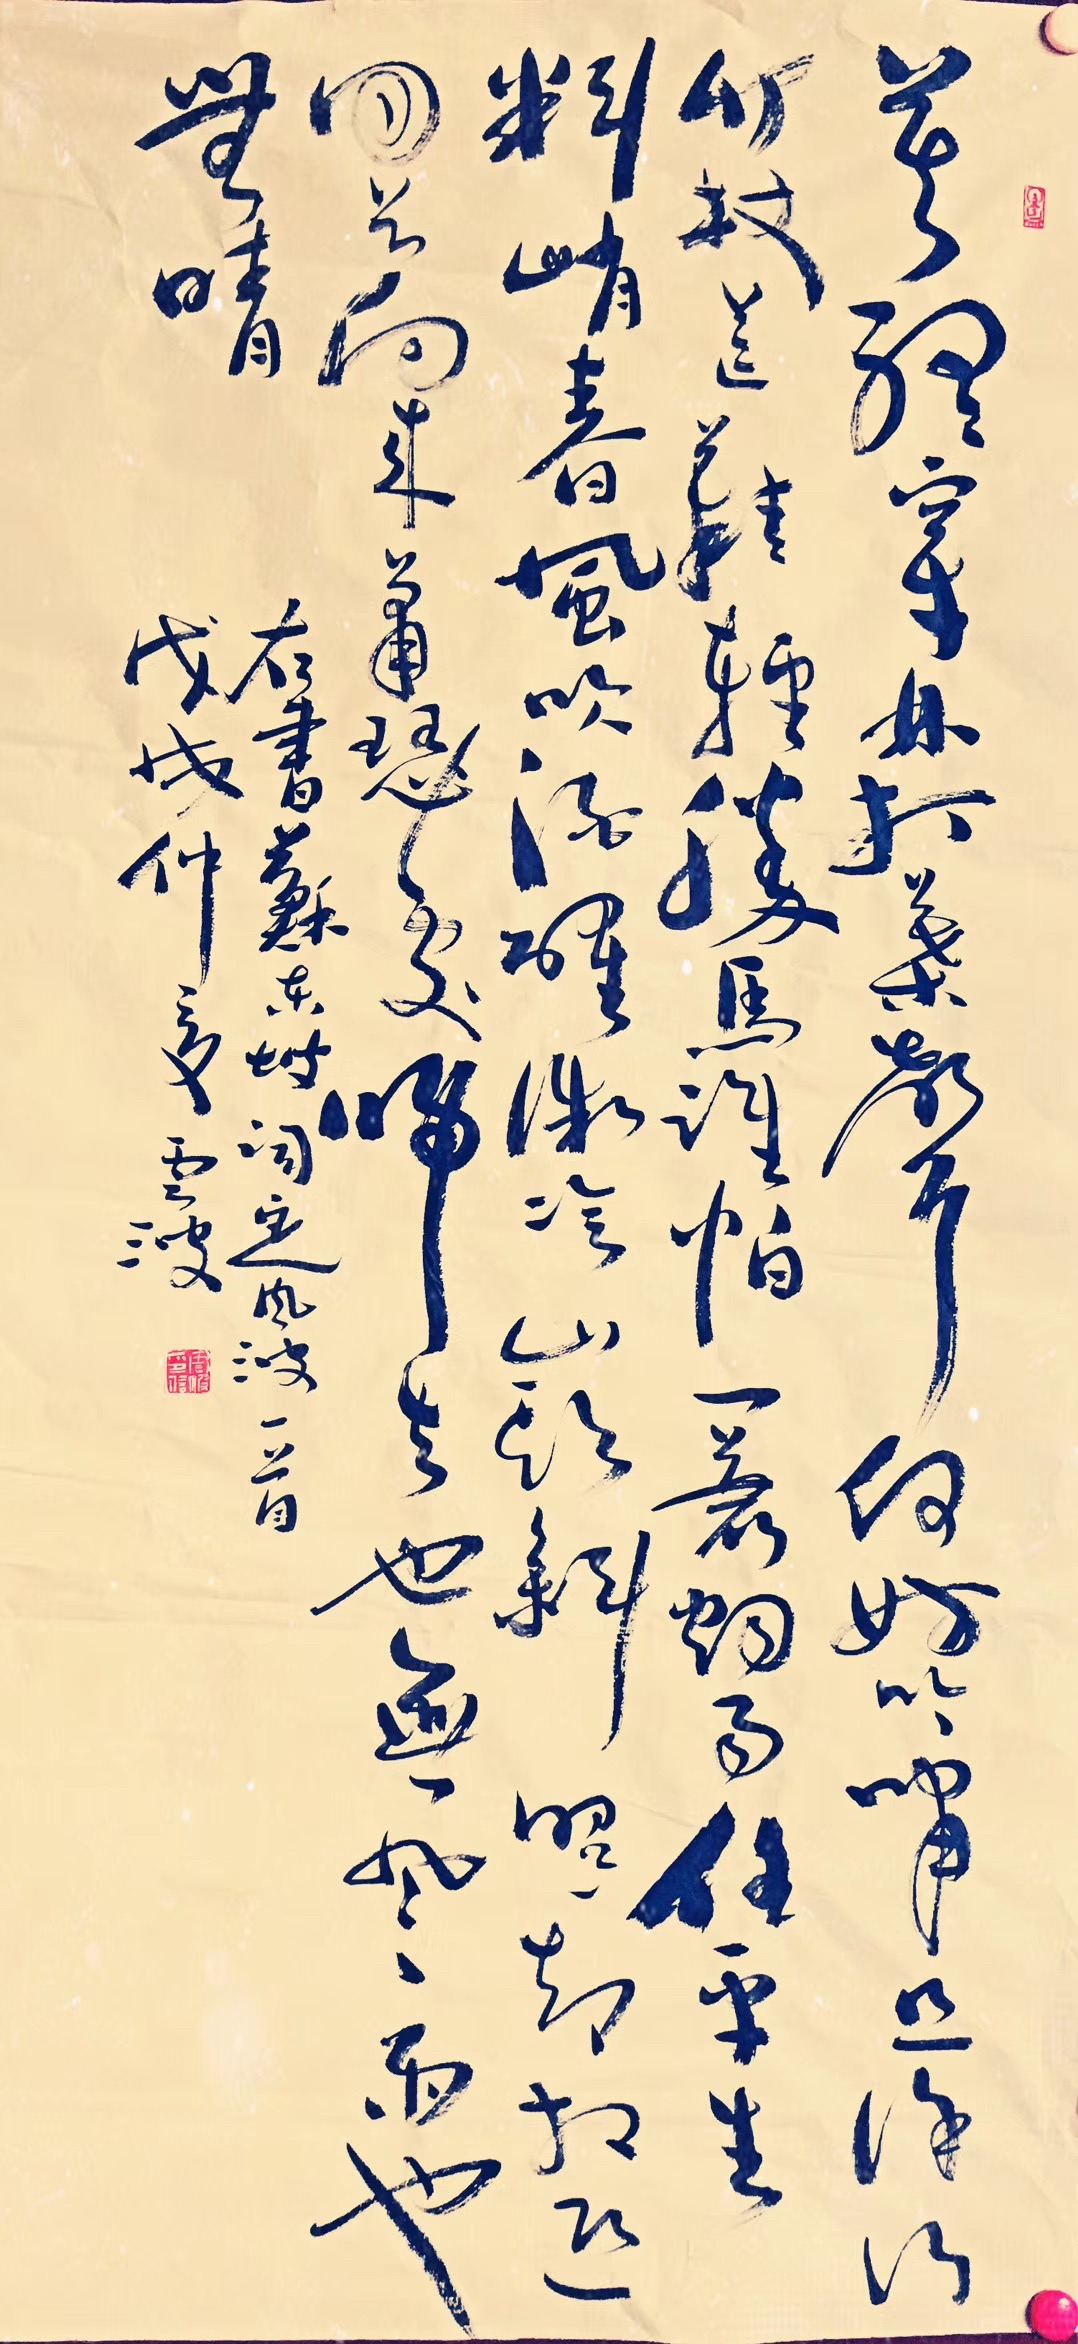 莫聽穿林打葉聲何妨吟嘯且徐行
竹杖芒鞋輕勝馬誰怕一蓑烟雨任平生
料峭春風吹酒醒微冷山頭斜照却相迎
回首向来蕭瑟處歸去也無風雨也
無晴
右書蘇东坡词定风波一首
戊戌仲夏雲波